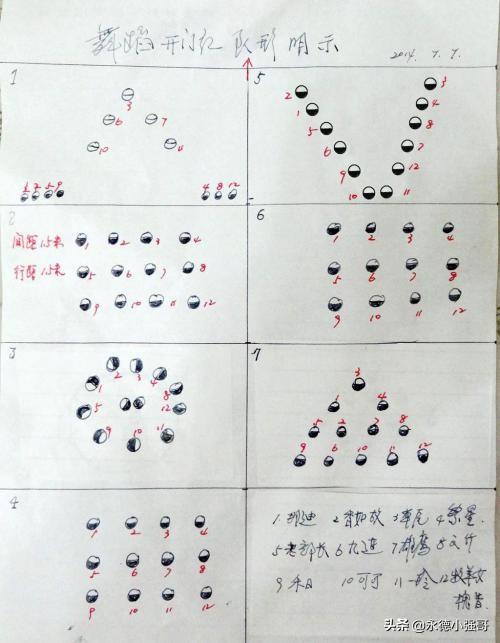 舞蹈开门红队形明示
2014.7.7.
1
3
6 7
10 11
1 2 5 9
4 8 12
2
间距1.5米
行距1.5米
1 2 3 4
5 6 7 8
9 10 11 12
3
1 2 3 4
5 8
9 10 11 12
4
1 2 3 4
5 6 7 8
9 10 11 12
5
2 3
1 4
5 8
6 7
9 12
10 11
6
1 2 3 4
5 6 7 8
9 10 11 12
7
3
1 4
5 2 7 8
9 6 10 11 12
4繁星
5老部长 6 7雄鹰 8文竹
9冬日 10可可 11一公 12牧羊女
头条 @永德小强哥